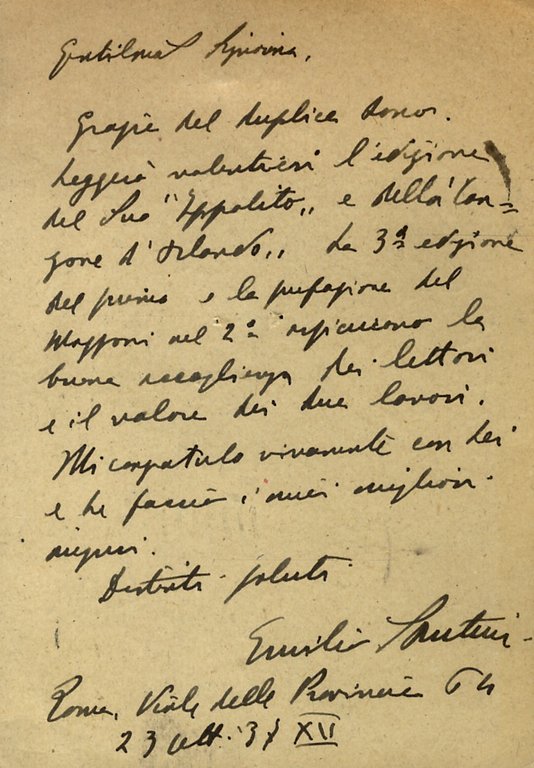 Gentilma Signorina,
Grazie del duplice dono.
Leggerò volentieri l'edizione
del Suo "Ippolito„ e della "Can=
zone d'Orlando„. La 3ª edizione
del primo e la prefazione del
Mazzoni nel 2° assicurano la
buona accoglienza dei lettori
e il valore dei due lavori.
Mi congratulo vivamente con Lei
e Le faccio i miei migliori
auguri.
Distinti saluti
Emilio Santini
Roma, Viale delle Provincie
23 ott. 37 XII